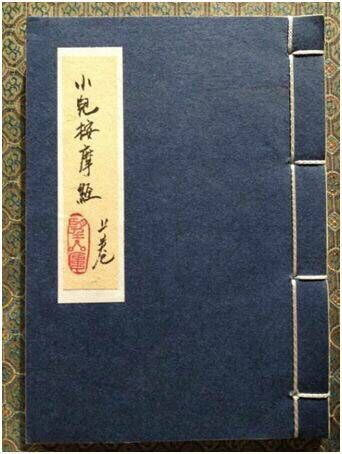 小兒按摩經
上卷